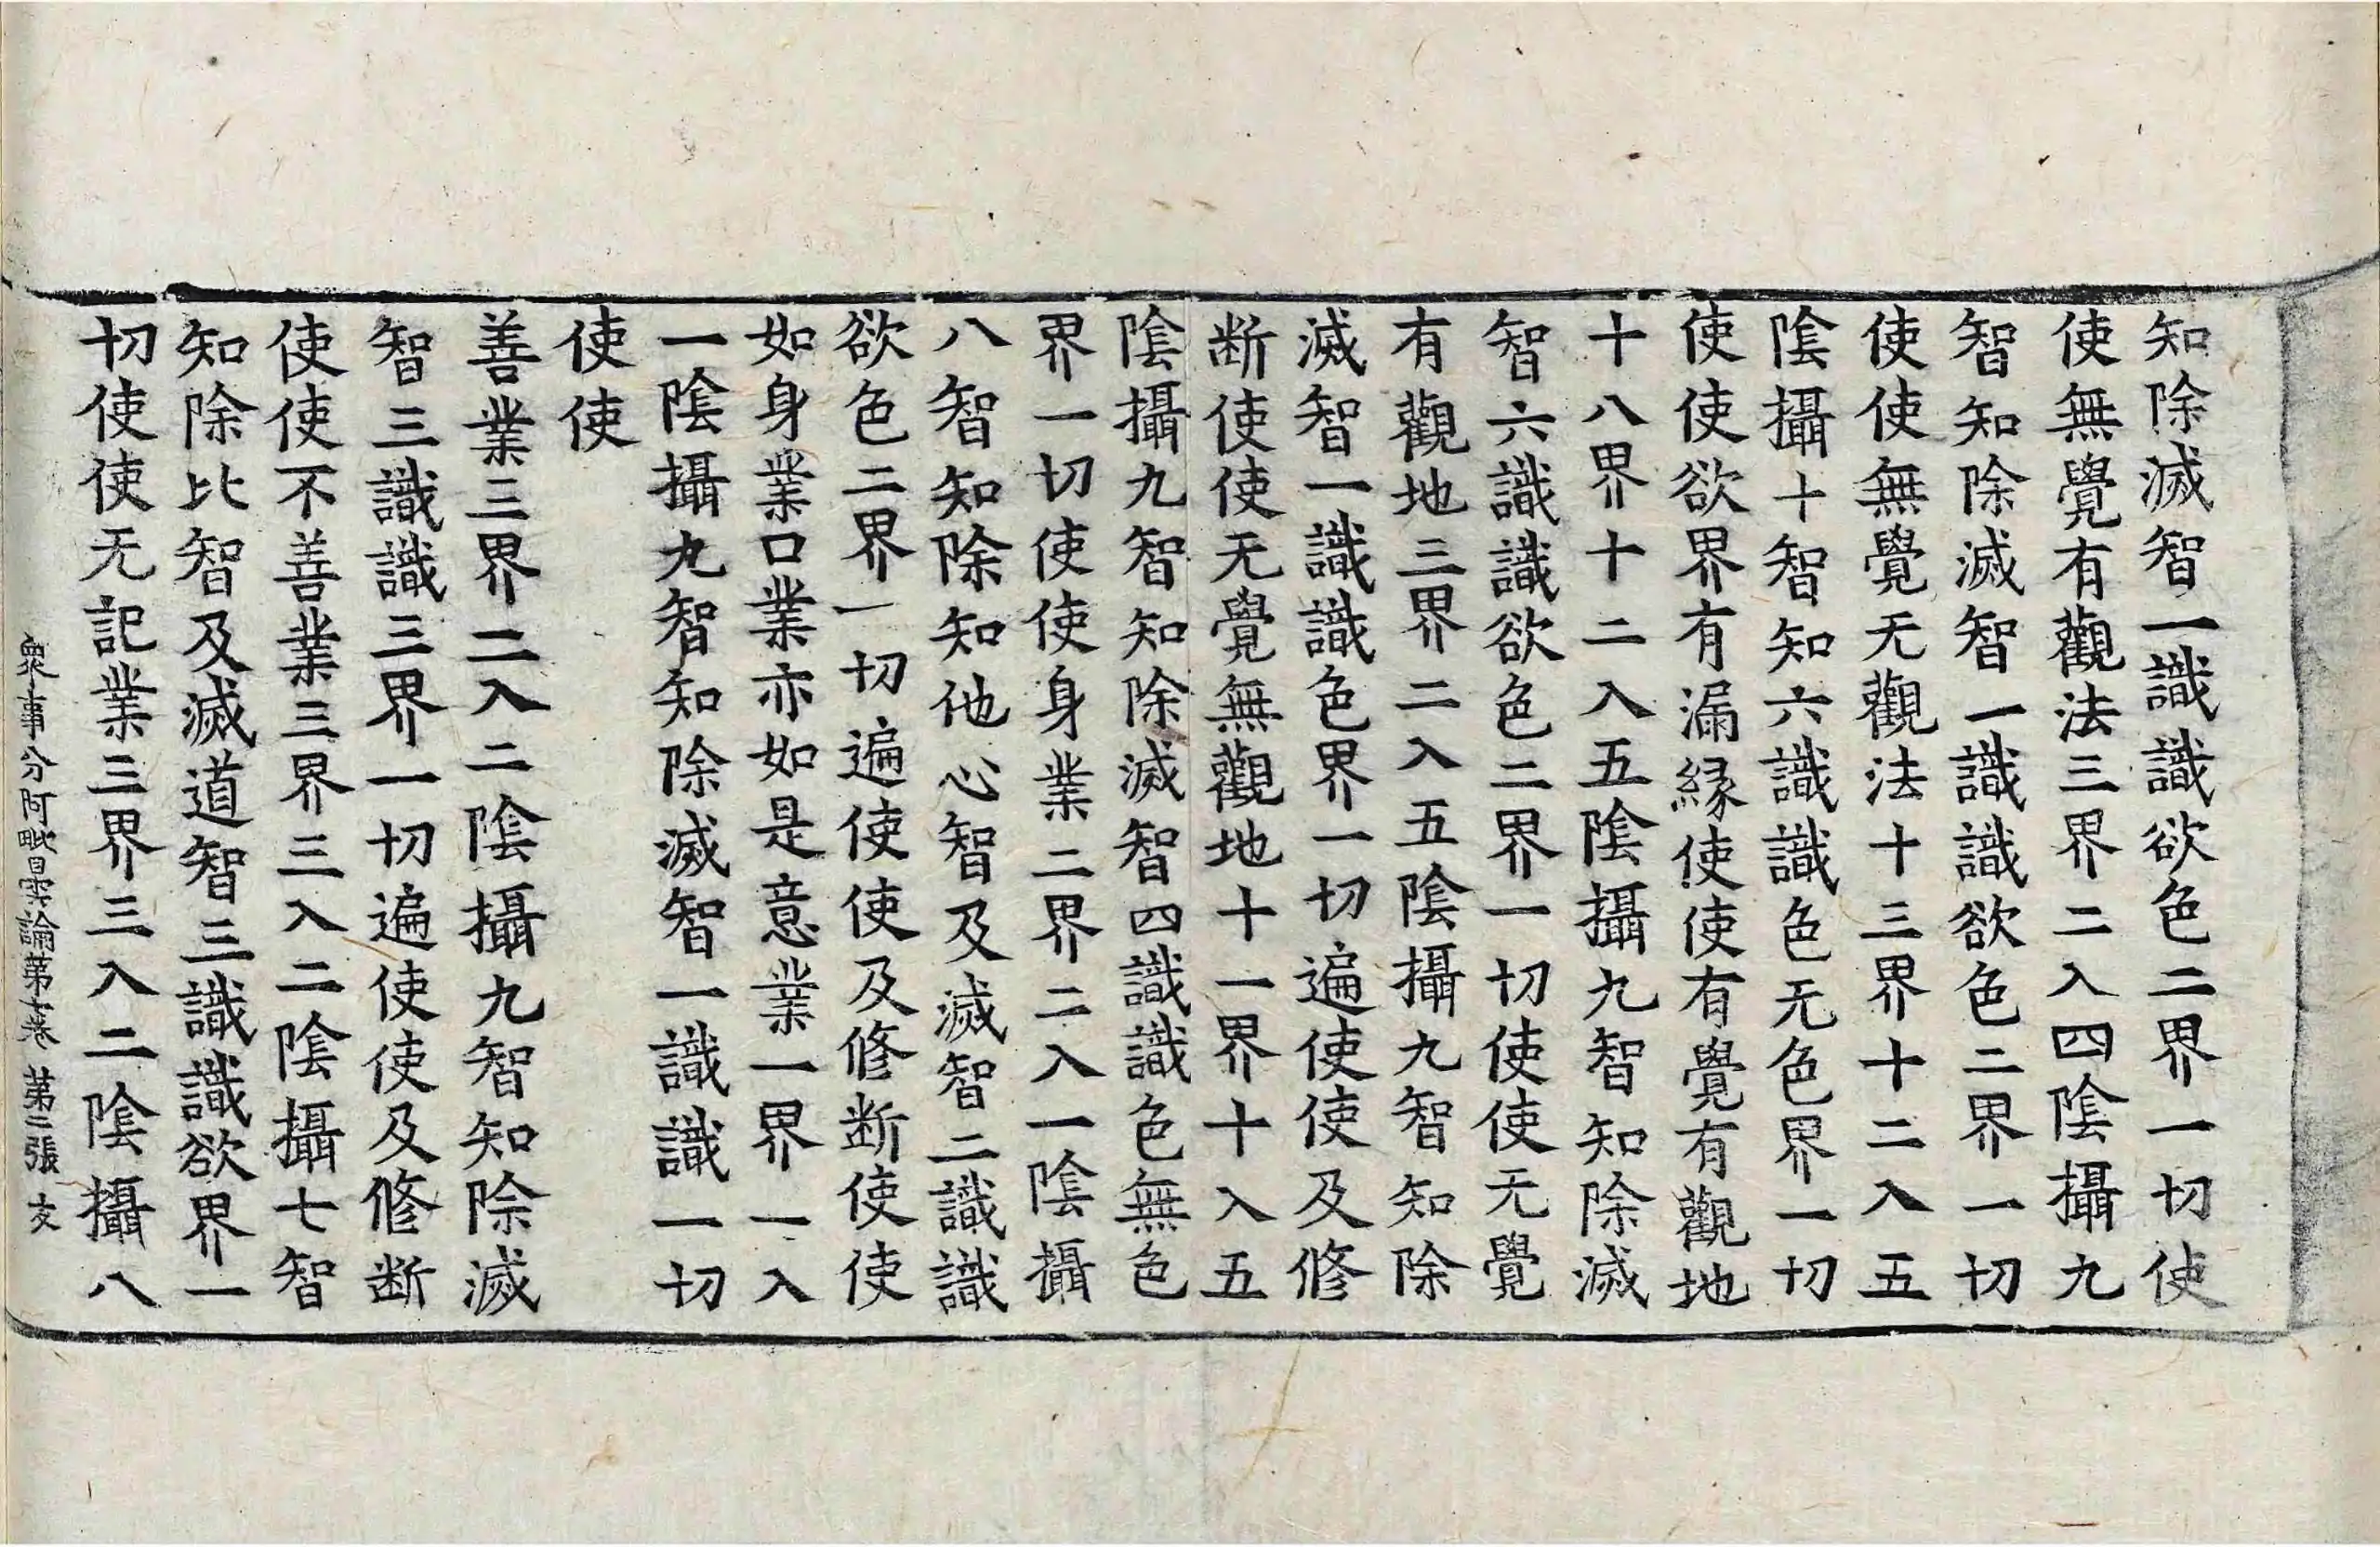 知除滅智一識識欲色二界一切使
使無覺有觀法三界二入四陰攝九
智知除滅智一識識欲色二界一切
使使無覺无觀法十三界十二入五
陰攝十智知六識識色无色界一切
使使欲界有漏縁使使有覺有觀地
十八界十二入五陰攝九智知除滅
智六識識欲色二界一切使使无覺
有觀地三界二入五陰攝九智知除
滅智一識識色界一切遍使使及修
断使使无覺無觀地十一界十入五
陰攝九智知除滅智四識識色無色
界一切使使身業二界二入一陰攝
八智知除知他心智及滅智二識識
欲色二界一切遍使使及修断使使
如身業口業亦如是意業一界一入
一陰攝九智知除滅智一識識一切
使使
善業三界二入二陰攝九智知除滅
智三識識三界一切遍使使及修断
使使不善業三界三入二陰攝七智
知除比智及滅道智三識識欲界一
切使使无記業三界三入二陰攝八
衆事分阿毗曇論第七卷 第二張 友